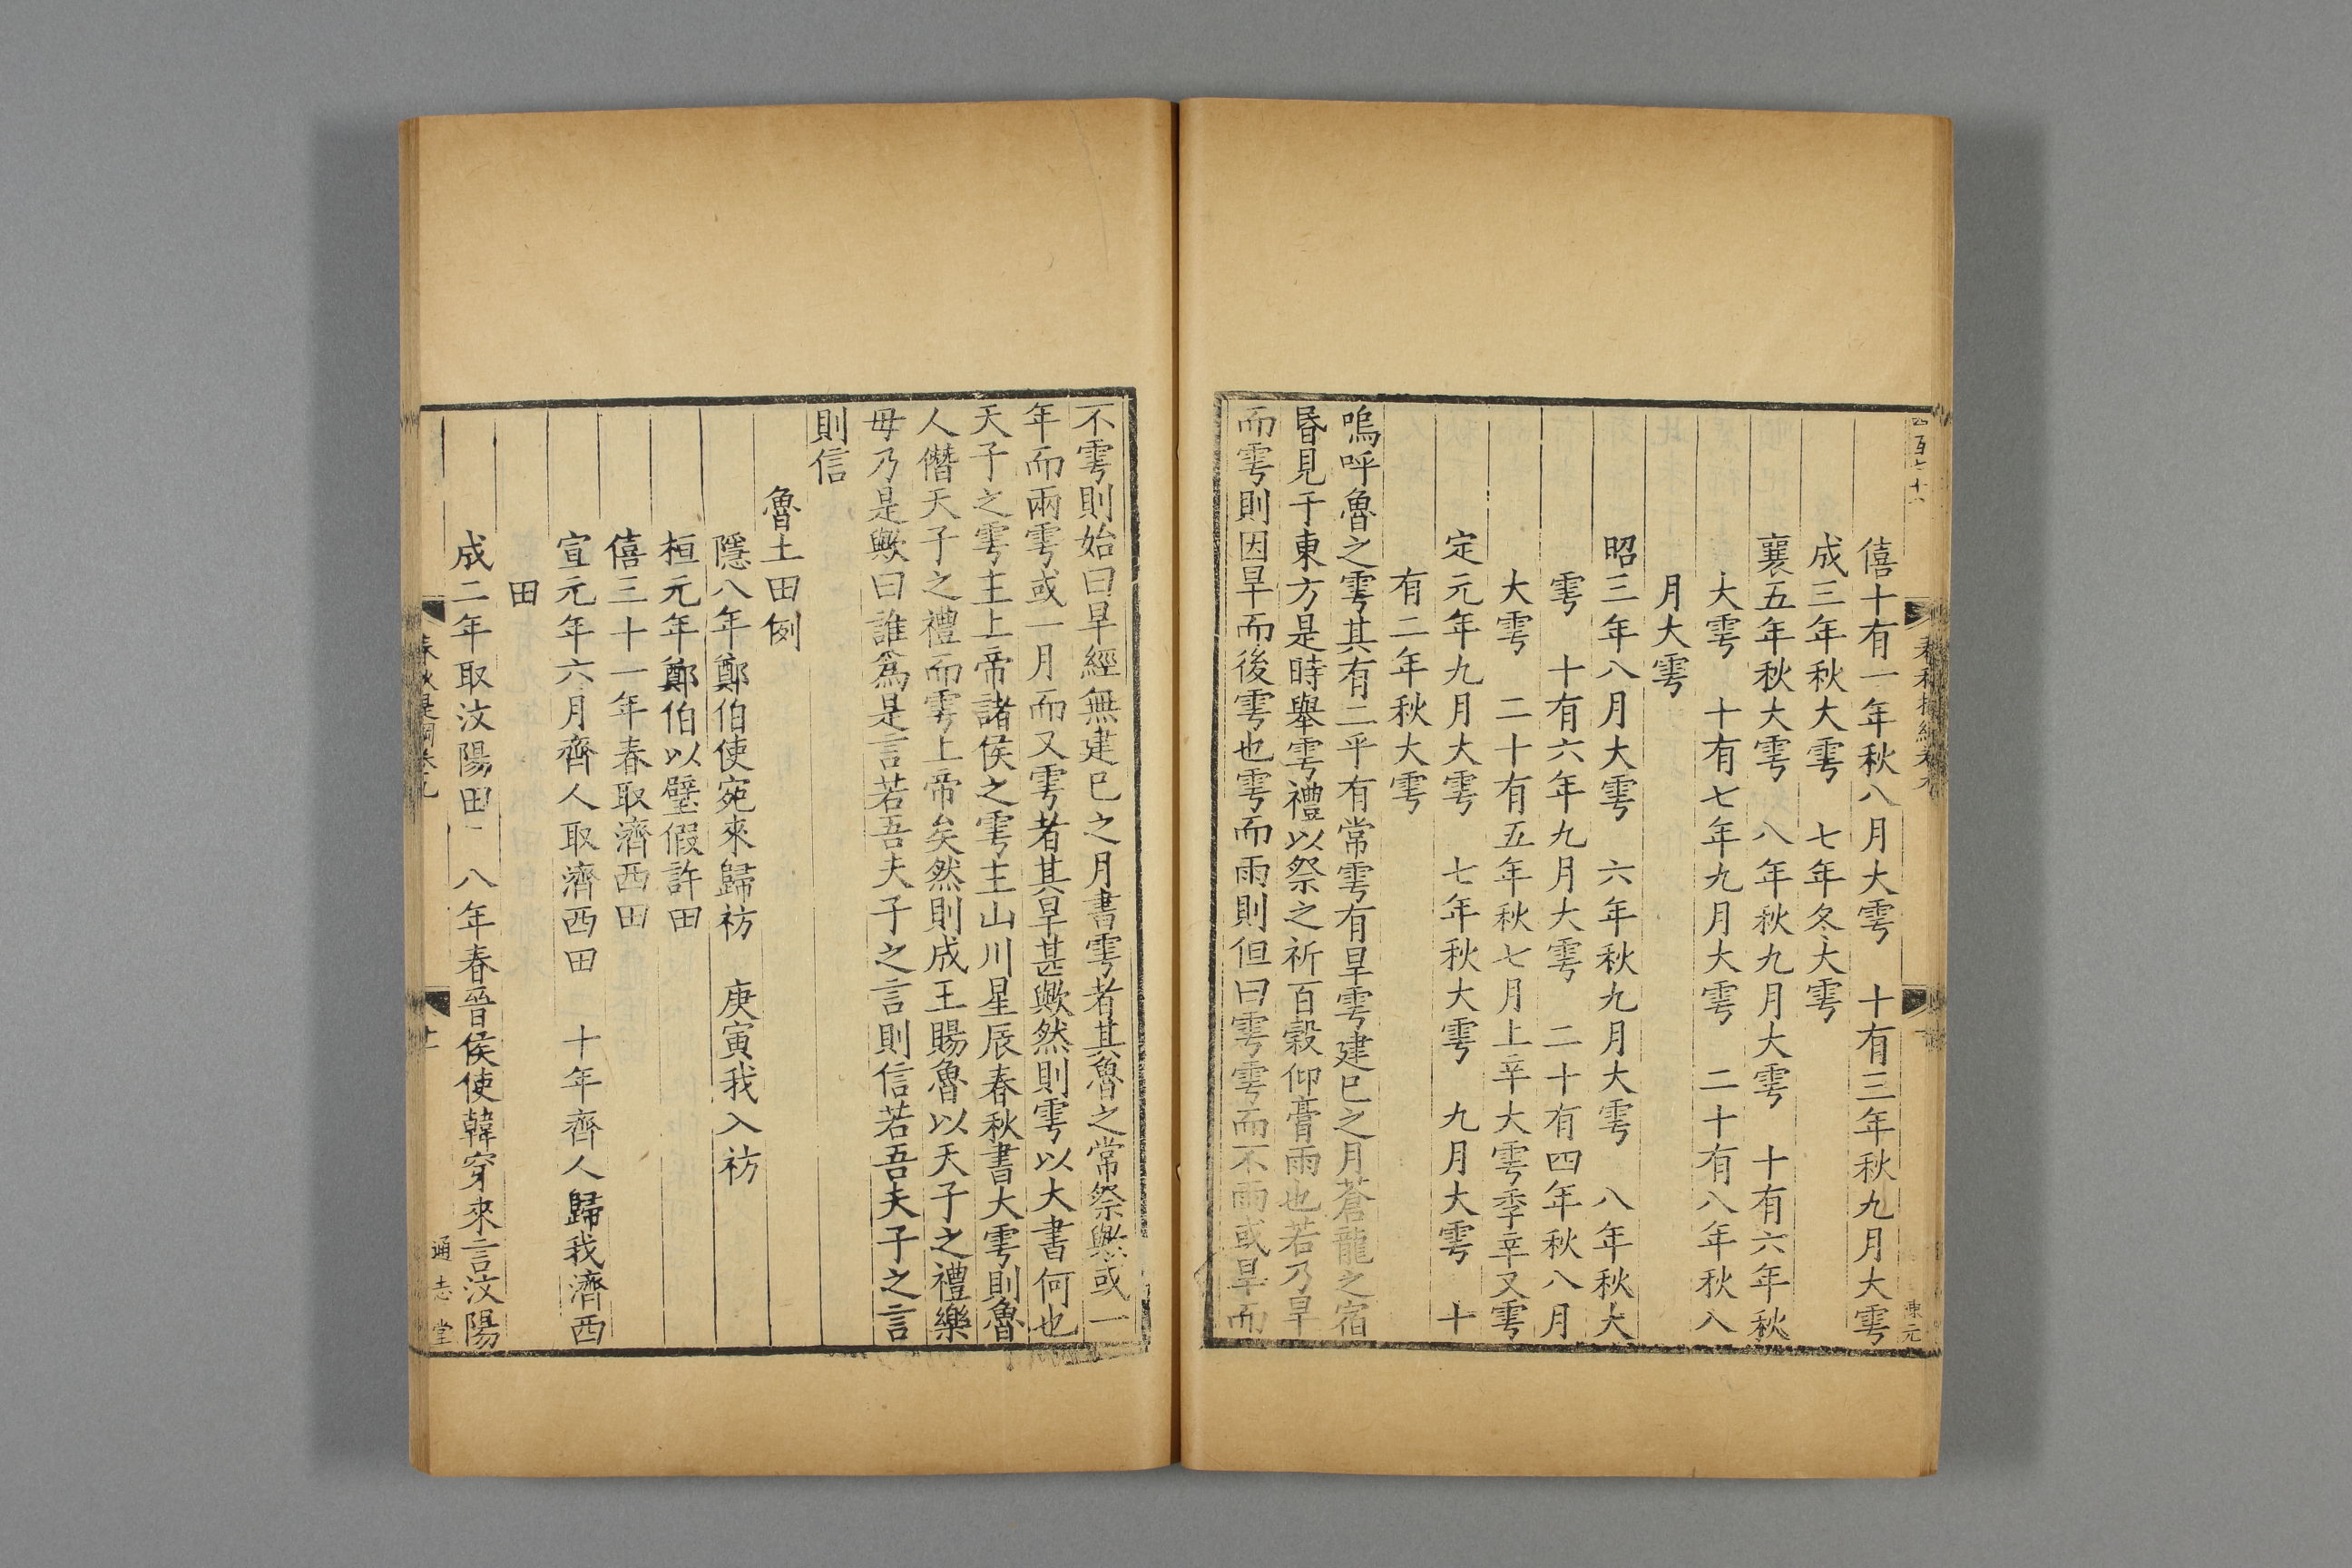 僖十有一年秋八月大雩　十有三年秋九月大雩
成三年秋大雩　七年冬大雩
襄五年秋大雩　八年秋九月大雩　十有六年秋
大雩　十有七年九月大雩　二十有八年秋八
月大雩
昭三年八月大雩　六年秋九月大雩　八年秋大
雩　十有六年九月大雩　二十有四年秋八月
大雩　二十有五年秋七月上辛大雩季辛又雩
定元年九月大雩　七年秋大雩　九月大雩　十
有二年秋大雩
嗚呼魯之雩其有二乎有常雩有旱雩建巳之月蒼龍之宿
昏見于東方是時舉雩禮以祭之祈百穀仰膏雨也若乃旱
而雩則因旱而後雩也雩而雨則但曰雩雩而不雨或旱而
不雩則始曰旱經無建巳之月書雩者其魯之常祭歟或一
年而兩雩或一月而又雩者其旱甚歟然則雩以大書何也
天子之雩主上帝諸侯之雩主山川星辰春秋書大雩則魯
人僭天子之禮而雩上帝矣然則成王賜魯以天子之禮樂
毋乃是歟曰誰爲是言若吾夫子之言則信若吾夫子之言
則信
魯土田例
隱八年鄭伯使宛來歸祊　庚寅我入祊
桓元年鄭伯以璧假許田
僖三十一年春取濟西田
宣元年六月齊人取濟西田　十年齊人歸我濟西
田
成二年取汶陽田　八年春晉侯使韓穿來言汶陽
通志堂